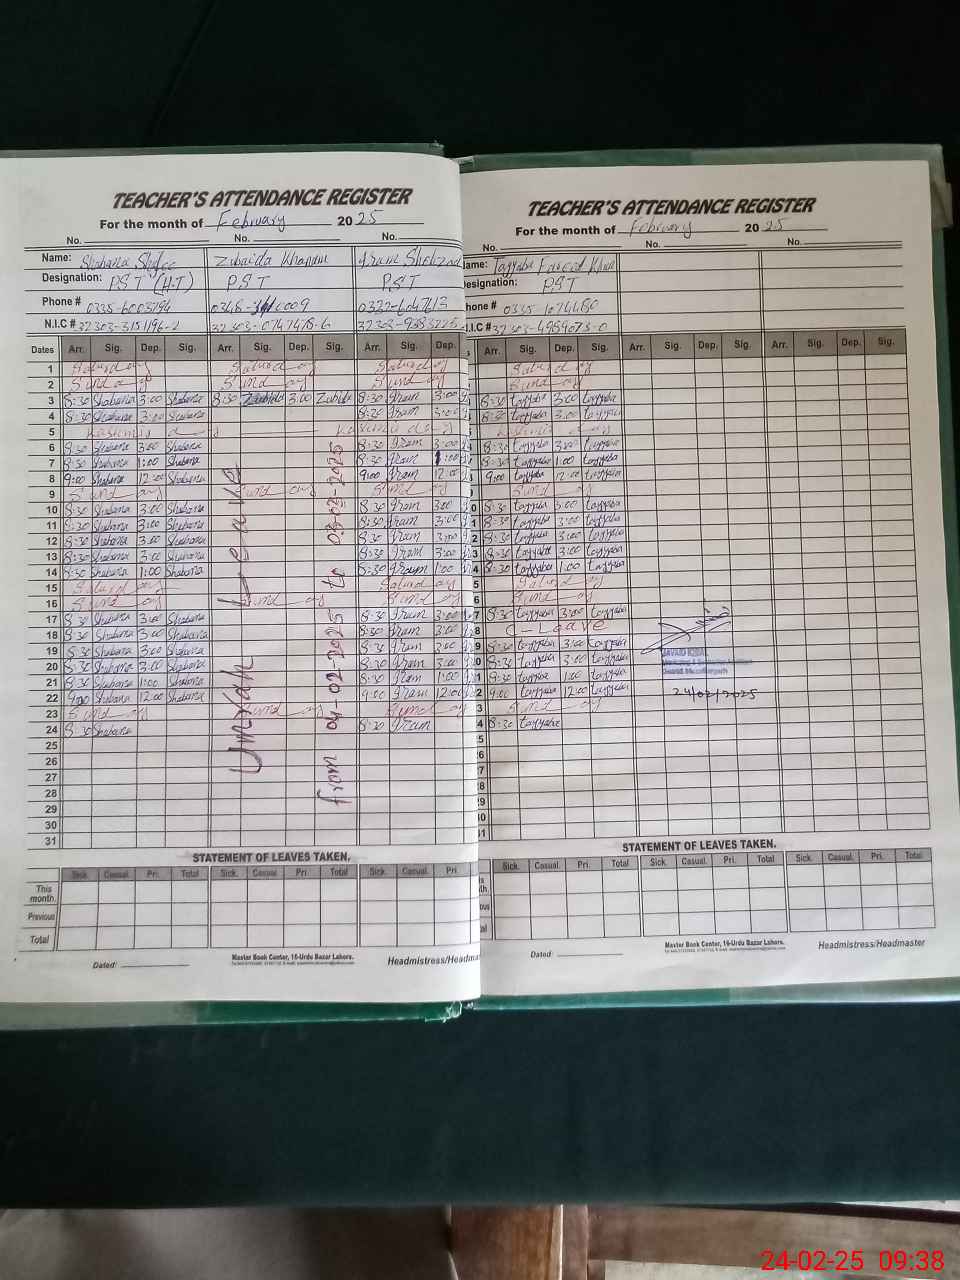 TEACHER'S ATTENDANCE REGISTER
For the month of February 2025
No. No. No.
Name: Shabana Zubaida Khanum Iram Shehzad
Designation: P.S.T (H.T) P.S.T P.S.T
Phone #
N.I.C #
Dates Arr. Sig. Dep. Sig. Arr. Sig. Dep. Sig. Arr. Sig. Dep.
1 Saturday Saturday Saturday
2 Sunday Sunday Sunday
3 8:30 Shabana 3:00 Shabana 8:30 Zubida 3:00 Zubida 8:30 Iram 3:00
4 8:30 Shabana 3:00 Shabana 8:30 Iram 3:00
5 Kashmir day Kashmir day
6 8:30 Shabana 3:00 Shabana 8:30 Iram 3:00
7 8:30 Shabana 1:00 Shabana 8:30 Iram 1:00
8 9:00 Shabana 12:00 Shabana 9:00 Iram 12:00
9 Sunday Sunday Sunday
10 8:30 Shabana 3:00 Shabana 8:30 Iram 3:00
11 8:30 Shabana 3:00 Shabana 8:30 Iram 3:00
12 8:30 Shabana 3:00 Shabana 8:30 Iram 3:00
13 8:30 Shabana 3:00 Shabana 8:30 Iram 3:00
14 8:30 Shabana 1:00 Shabana 8:30 Iram 1:00
15 Saturday Saturday
16 Sunday Sunday Sunday
17 8:30 Shabana 3:00 Shabana 8:30 Iram 3:00
18 8:30 Shabana 3:00 Shabana 8:30 Iram 3:00
19 8:30 Shabana 3:00 Shabana 8:30 Iram 3:00
20 8:30 Shabana 3:00 Shabana 8:30 Iram 3:00
21 8:30 Shabana 1:00 Shabana 8:30 Iram 1:00
22 9:00 Shabana 12:00 Shabana 9:00 Iram 12:00
23 Sunday Sunday Sunday
24 8:30 Shabana 8:30 Iram
25
26
27
28
29
30
31
Umrah Leave
from 04-02-2025 to 03-03-2025
STATEMENT OF LEAVES TAKEN.
Sick. Casual. Pri. Total Sick. Casual Pri. Total Sick. Casual.
This month.
Previous
Total
Dated:
Master Book Center, 16-Urdu Bazar Lahore.
Headmistress/Headma
TEACHER'S ATTENDANCE REGISTER
For the month of February 2025
No. No. No.
Name: Tayyaba Fareed Khan
Designation: P.S.T
Phone #
N.I.C #
Arr. Sig. Dep. Sig. Arr. Sig. Dep. Sig. Arr. Sig. Dep. Sig.
Saturday
Sunday
8:30 tayyaba 3:00 tayyaba
8:30 tayyaba 3:00 tayyaba
Kashmir day
8:30 tayyaba 3:00 tayyaba
8:30 tayyaba 1:00 tayyaba
9:00 tayyaba 12:00 tayyaba
Sunday
8:30 tayyaba 3:00 tayyaba
8:30 tayyaba 3:00 tayyaba
8:30 tayyaba 3:00 tayyaba
8:30 tayyaba 3:00 tayyaba
8:30 tayyaba 1:00 tayyaba
Saturday
Sunday
8:30 tayyaba 3:00 tayyaba
C-Leave
8:30 tayyaba 3:00 tayyaba
8:30 tayyaba 3:00 tayyaba
8:30 tayyaba 1:00 tayyaba
9:00 tayyaba 12:00 tayyaba
Sunday
8:30 tayyaba
JAVAID IQBAL
24/02/2025
STATEMENT OF LEAVES TAKEN.
Sick. Casual. Pri. Total Sick. Casual. Pri. Total Sick. Casual. Pri. Total
Dated:
Master Book Center, 16-Urdu Bazar Lahore.
Headmistress/Headmaster
24-02-25 09:38